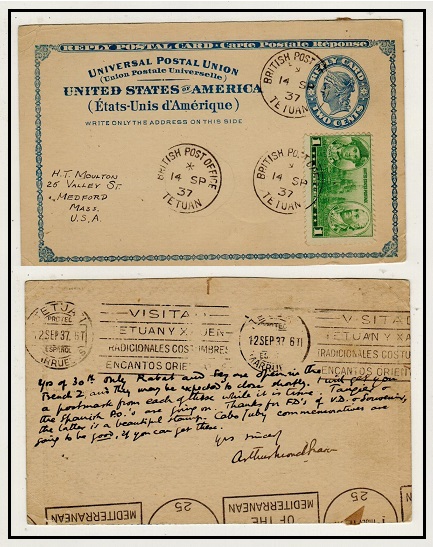 REPLY POSTAL CARD - Carte Postale Réponse
UNIVERSAL POSTAL UNION
(Union Postale Universelle)
UNITED STATES OF AMERICA
(États-Unis d'Amérique)
WRITE ONLY THE ADDRESS ON THIS SIDE
REPLY CARD
TWO CENTS
BRITISH POST OFFICE
14 SP
37
TETUAN
BRITISH POST OFFICE
14 SP
37
TETUAN
BRITISH POST OFFICE
14 SP
37
TETUAN
1
1
H.T. MOULTON
25 VALLEY ST.
MEDFORD
MASS.
U.S.A.
TETUAN
12 SEP 37. 6T
ESPAÑOL
MARRUECOS
VISITAD
TETUAN Y XAUEN
TRADICIONALES COSTUMBRES
ENCANTOS ORIENT
12 SEP 37. 6T
VISITA
TETUAN Y
TRADICIONALES COS
ENCANTOS ORIENT
Yrs of 30th. Only Rabat and Fez are open in the
French Z. and they may be expected to close shortly. I will get you
a postmark from each of these while it is time. Tangier &
the Spanish P.O.'s are going on. Thanks for FD's of V.D. & Souvenirs,
the latter is a beautiful stamp. Cabo Juby commemoratives are
going to be good, if you can get them.
Yrs sincely
25
MEDITERRANEAN
OF THE
25
MEDITERRANEAN